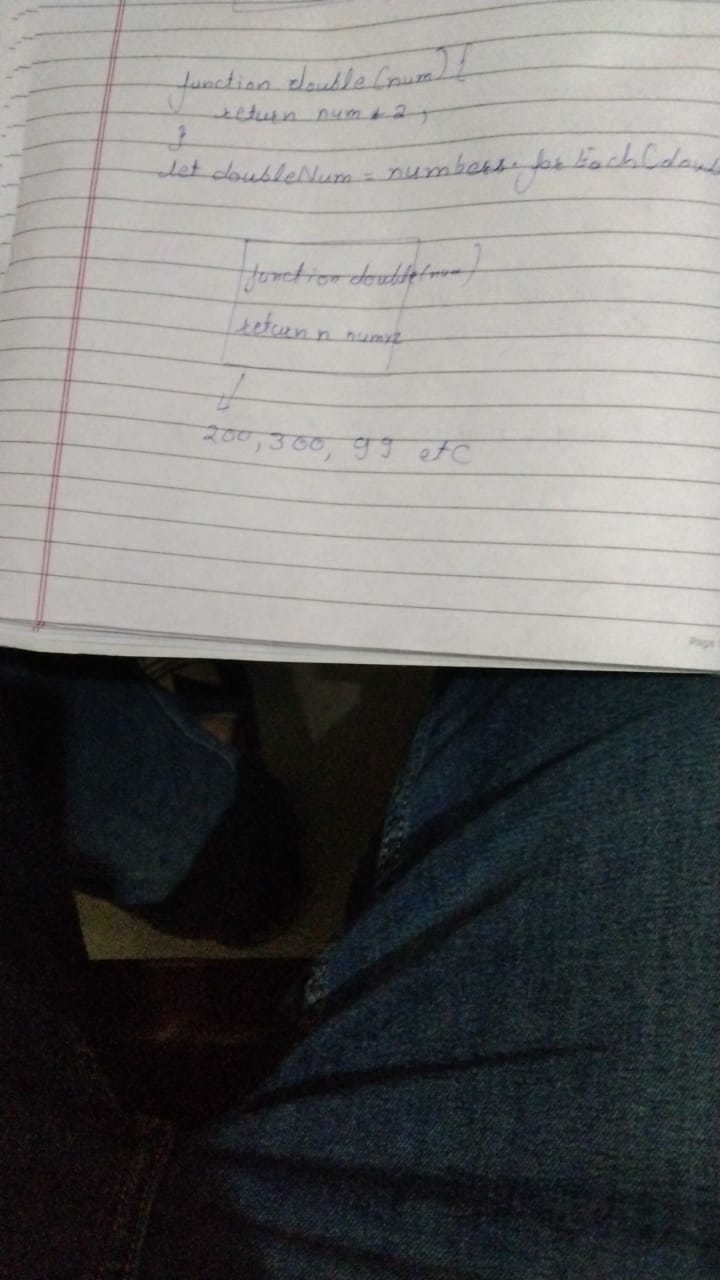 function double(num) {
return num * 2;
}
let doubleNum = numbers.forEach(doub
function double(num)
return n num*2
200, 300, 99 etc
Page